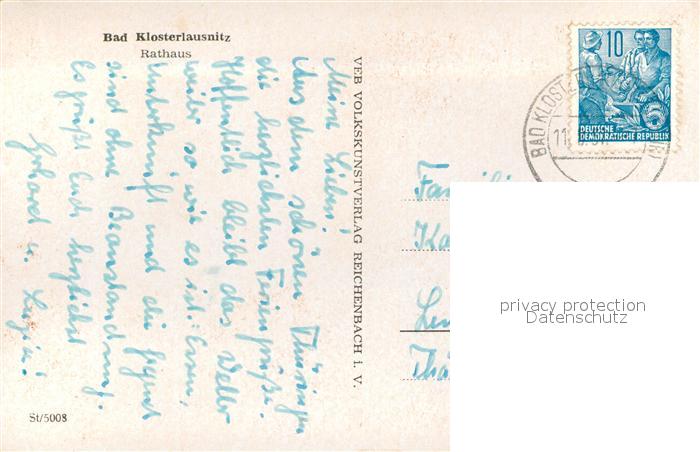 Bad Klosterlausnitz
Rathaus
Meine Lieben!
Aus dem schönen Thüringen
die herzlichsten Feriengrüße.
Hoffentlich bleibt das Wetter
weiter so wie es ist. Essen,
Unterkunft und die Gegend
sind ohne Beanstandung.
Es grüßt Euch herzlichst
Gerhard u.
St/5008
VEB VOLKSKUNSTVERLAG REICHENBACH i. V.
10
DEUTSCHE
DEMOKRATISCHE REPUBLIK
BAD KLOST
Famili
Ka
Thü
privacy protection
Datenschutz